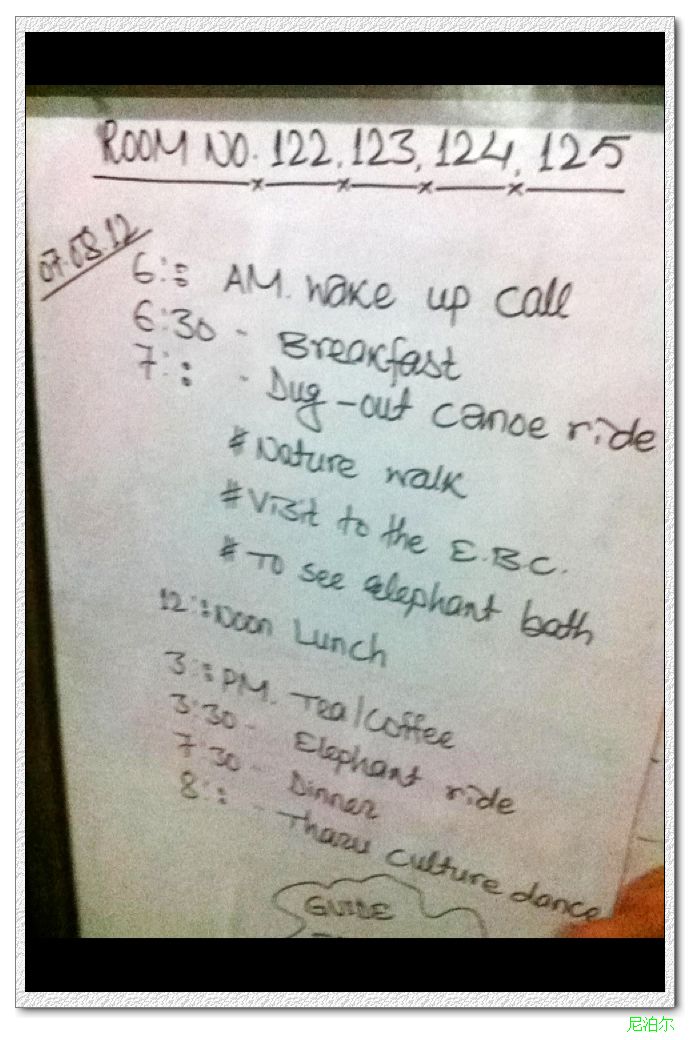 ROOM NO. 122, 123, 124, 125
07.08.12
6:: AM. wake up call
6:30 - Breakfast
7:: - Dug-out canoe ride
# Nature walk
# Visit to the E.B.C.
# To see elephant bath
12:: Noon Lunch
3:: PM. Tea/Coffee
3:30 - Elephant ride
7:30 - Dinner
8:: - Tharu culture dance
GUIDE
尼泊尔